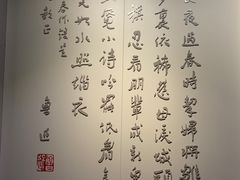 長夜過春時挈婦將雛
裏依稀慈母淚城頭
旗忍看朋輩成新鬼
叢覓小詩吟罷低眉
光如水照緇衣
春作錄呈
教正
魯迅